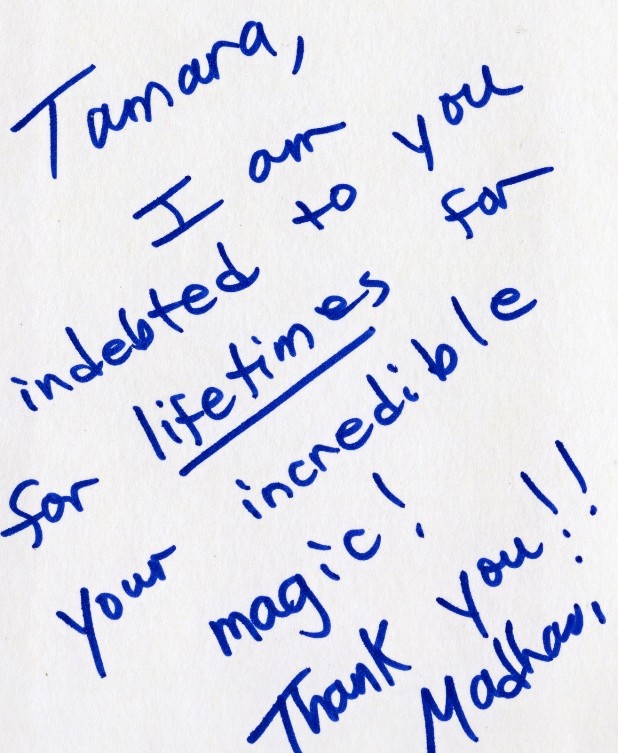 Tamara,
I am
indebted to you
for lifetimes for
your incredible
magic!
Thank you!!